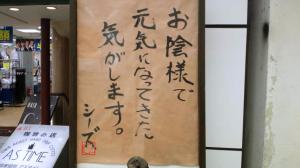 お陰様で
元気になってきた
気がします。
シーズ
珈琲の店
AS TIME